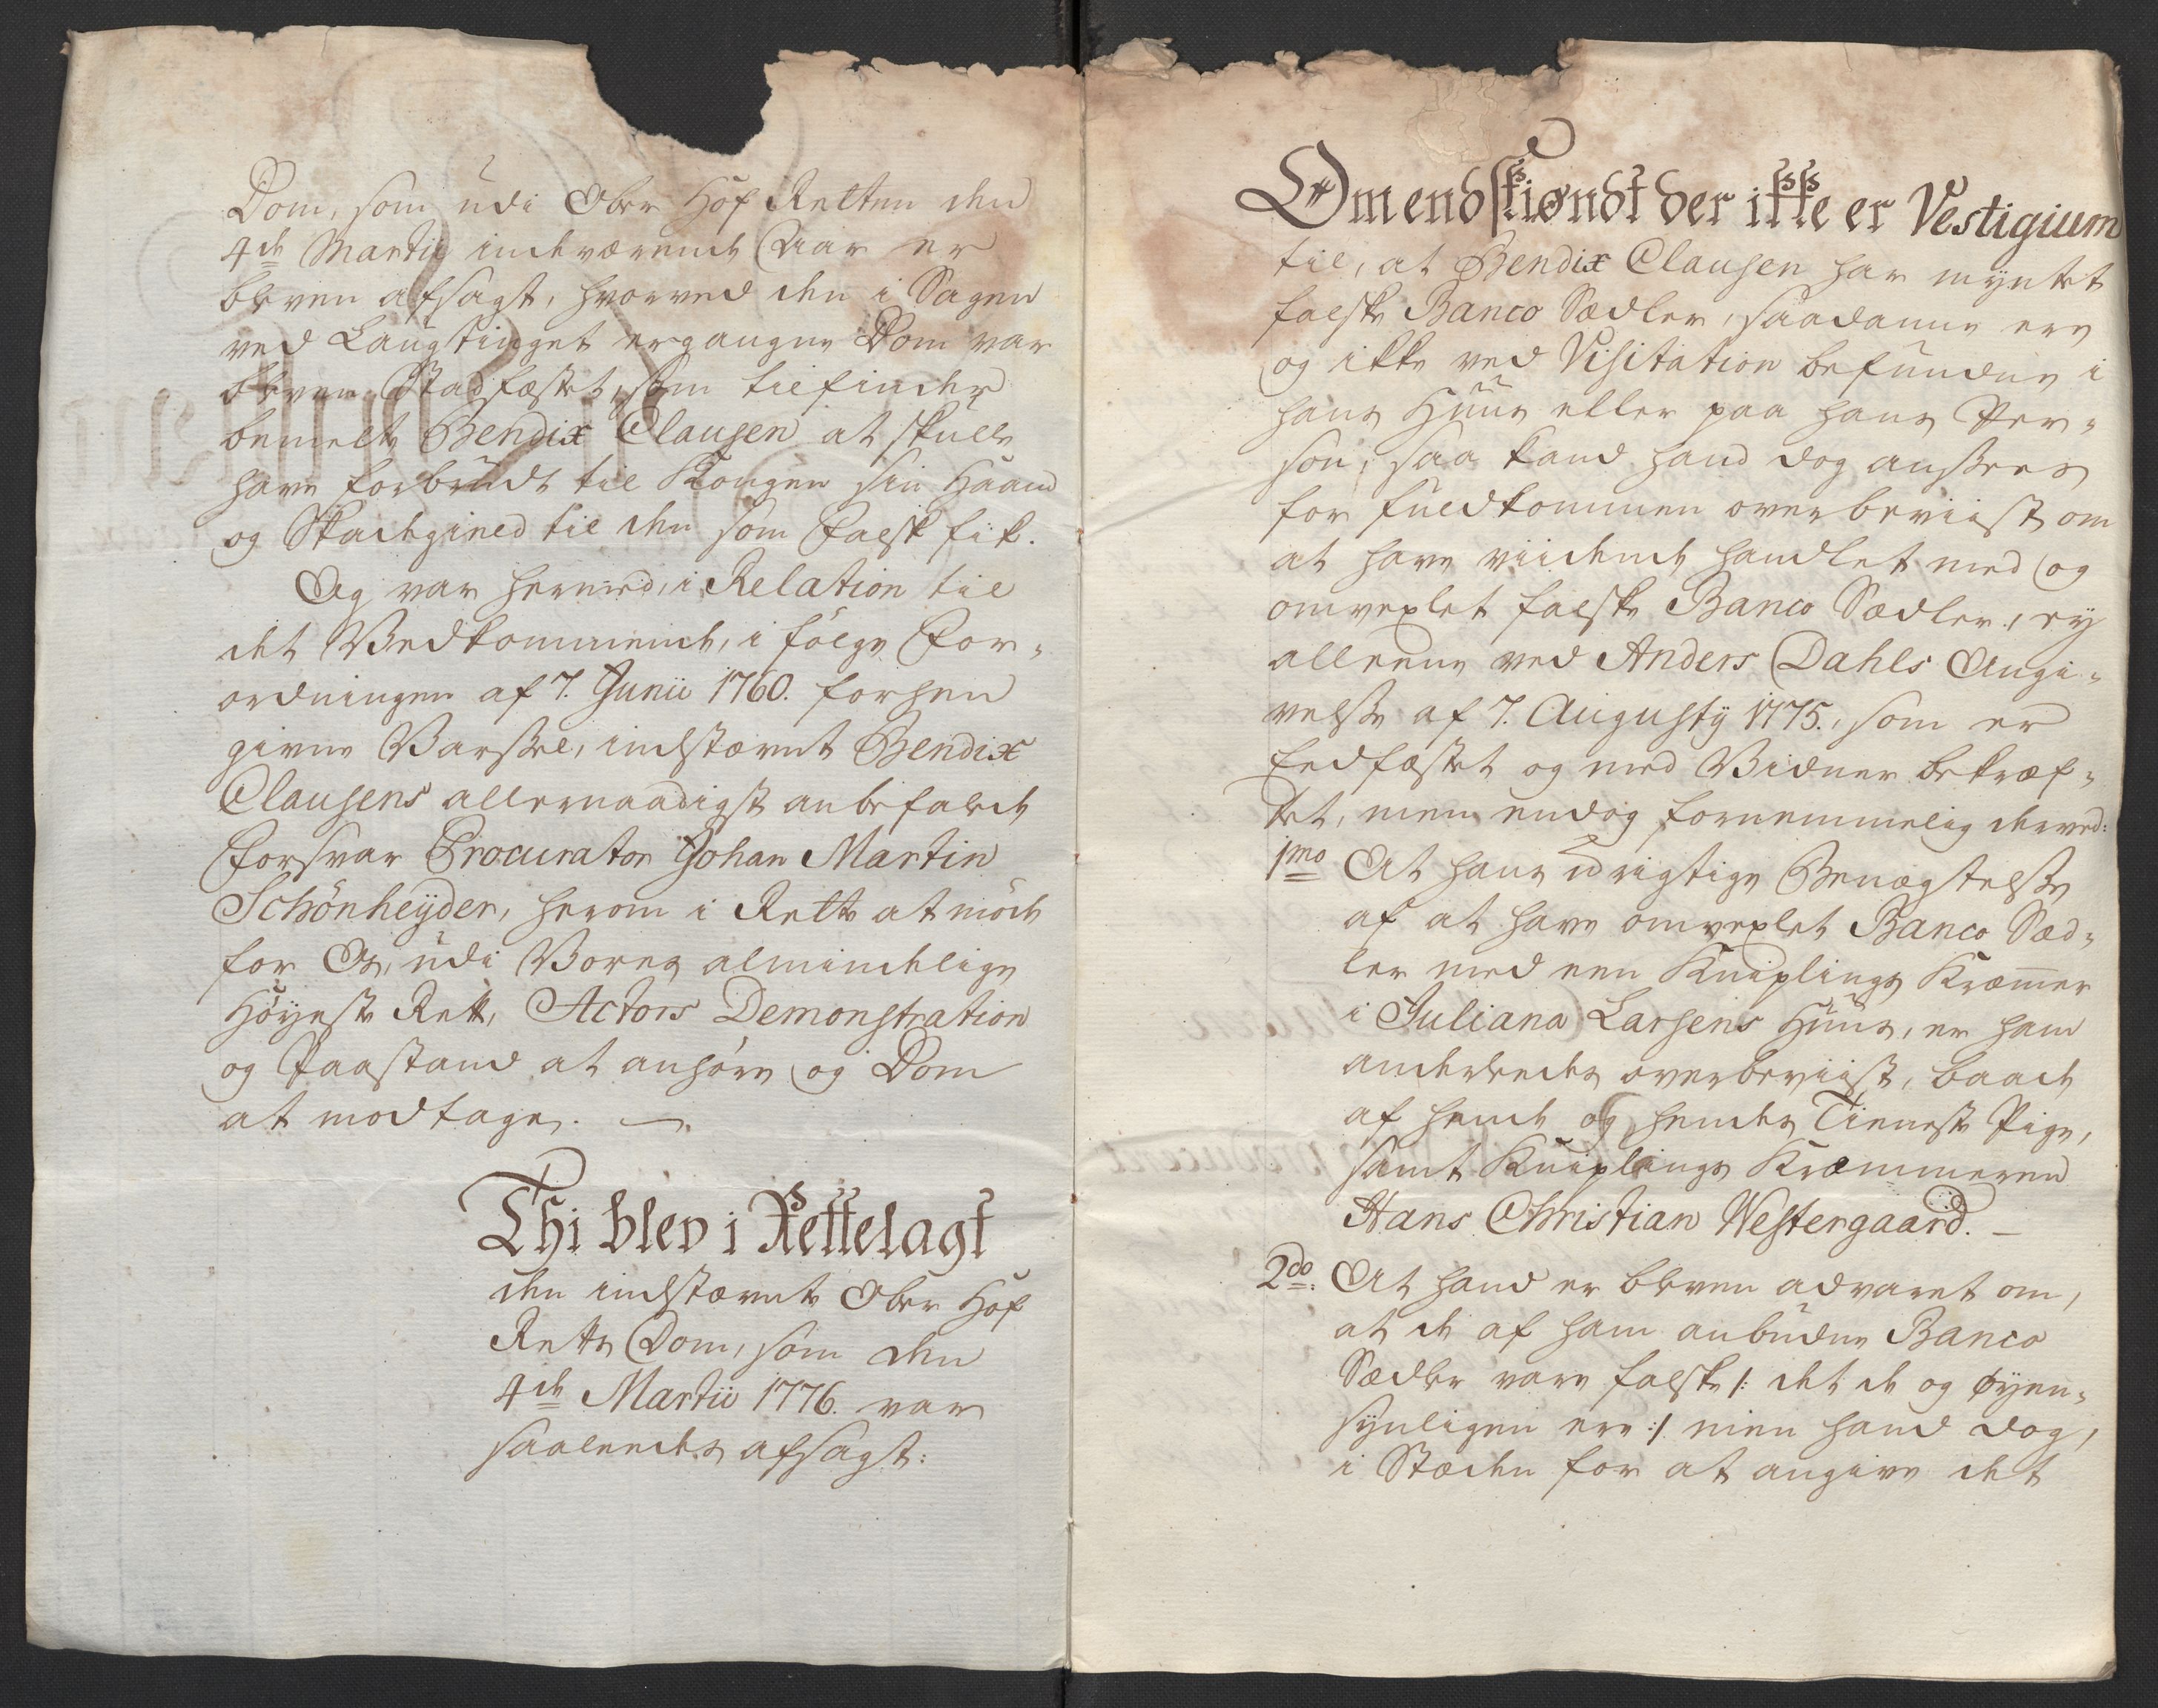 Dom, som udi Ober Hof Retten den
4de Martii indeværende Aar er
bleven afsagt, hvorved den i Sagen
ved Laugtinget ergangne Dom var
bleven Stadfæstet, som tilfinder
bemelte Bendix Clausen at skulle
have forbrudt til Kongen sin Haand
og Skadegield til den som Falsk fik.
Og var hermed, i Relation til
det Vedkommende, i følge For-
ordningen af 7. Junii 1760. forhen
givne Varsel, indstævnt Bendix
Clausens allernaadigst anbefalede
Forsvar Procurator Johan Martin
Schönheyder, herom i Rette at møde
for Os, udi Vores almindelige
Høyeste Rett, Actors Demonstration
og Paastand at anhøre og Dom
at modtage. —
Thi blev i Rettelagt
den indstævnte Ober Hof
Retts Dom, som den
4de Martii 1776. var
saaledes afsagt:
Omendskiøndt der ikke er Vestigium
til, at Bendix Clausen har myntet
falske Banco Sædler, saadanne ere
og ikke ved Visitation befundne i
hans Huus eller paa hans Per-
son, saa kand hand dog ansees
for fuldkommen overbeviist om
at have viidende handlet med og
omvexlet falske Banco Sædler, ey
alleene ved Anders Dahls Angi-
velse af 7. Augusty 1775., som er
Eedfæstet og med Vidner bekræf-
tet, men endog fornemmelig derved:
1mo At hans urigtige Benægtelse
af at have omvexlet Banco Sæd-
ler med een Kniplings Kræmer
i Juliana Larsens Huus, er ham
anderledes overbeviist, baade
af hende og hendes Tieneste Pige,
samt Kniplings Kræmmeren
Hans Christian Westergaard. —
2do. At hand er bleven advaret om,
at de af ham anbudne Banco
Sædler vare falske /: det de og øyen-
synligen ere :/ men hand dog,
i Stæden for at angive det